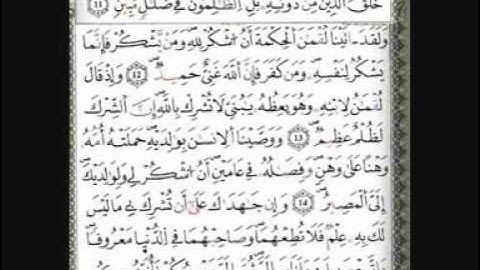 خلق الذين من دونه بل الظلمون في ضلل مبين ١١
ولقد ءاتينا لقمن الحكمة أن اشكر لله ومن يشكر فإنما
يشكر لنفسه ومن كفر فإن الله غني حميد ١٢ وإذ قال
لقمن لابنه وهو يعظه يبني لا تشرك بالله إن الشرك
لظلم عظيم ١٣ ووصينا الإنسن بولديه حملته أمه
وهنا على وهن وفصله في عامين أن اشكر لي ولولديك
إلي المصير ١٤ وإن جهداك على أن تشرك بي ما ليس
لك به علم فلا تطعهما وصاحبهما في الدنيا معروفا